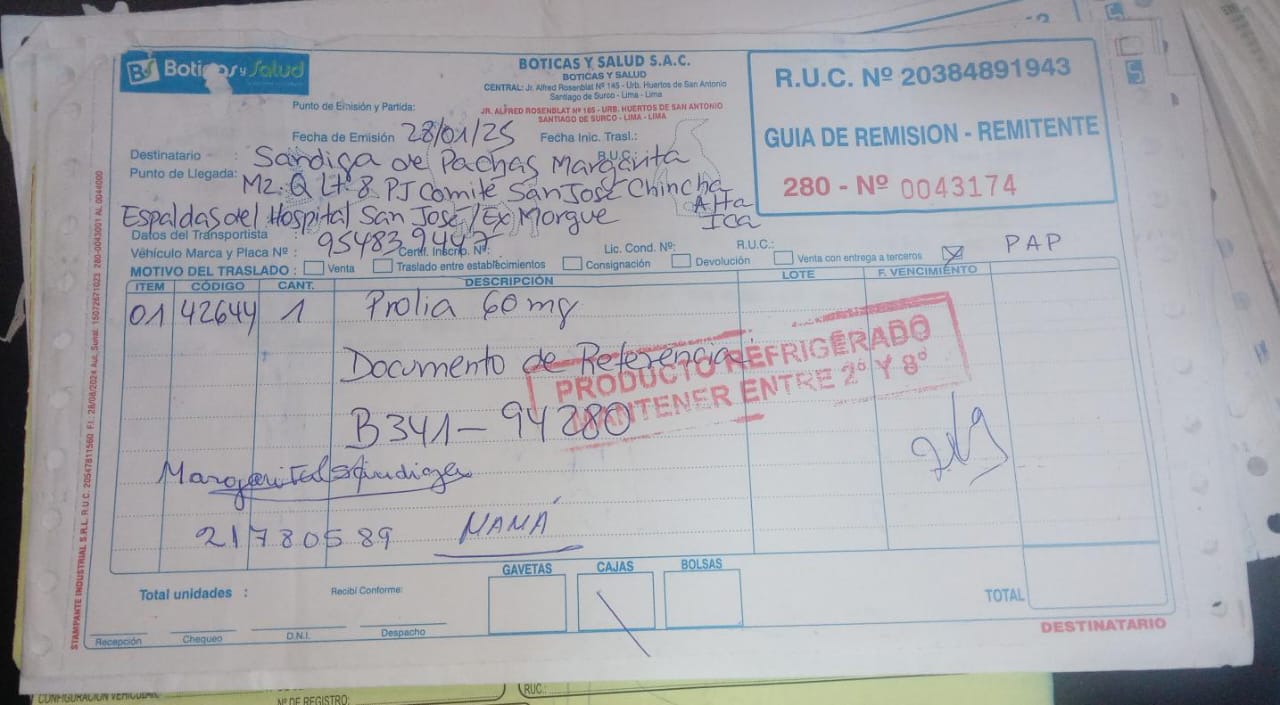 BS Boticas y Salud
BOTICAS Y SALUD S.A.C.
BOTICAS Y SALUD
CENTRAL: Jr. Alfred Rosenblat Nº 165 - Urb. Huertos de San Antonio
Santiago de Surco - Lima - Lima
R.U.C. Nº 20384891943
GUIA DE REMISION - REMITENTE
280 - Nº 0043174
Punto de Emisión y Partida: JR. ALFRED ROSENBLAT Nº 165 - URB. HUERTOS DE SAN ANTONIO
SANTIAGO DE SURCO - LIMA - LIMA
Fecha de Emisión 28/01/25 Fecha Inic. Trasl.:
Destinatario : Sandiga de Pachas Margarita R.U.C.
Punto de Llegada: Mz. Q Lt. 8 PJ Comité San José Chincha
Alta
Espaldas del Hospital San José / Ex Morgue Ica
Datos del Transportista 954839447
Vehículo Marca y Placa Nº : Certif. Inscrip. Nº: Lic. Cond. Nº: R.U.C.:
MOTIVO DEL TRASLADO : Venta Traslado entre establecimientos Consignación Devolución Venta con entrega a terceros PAP
ITEM CÓDIGO CANT. DESCRIPCIÓN LOTE F. VENCIMIENTO
01 42644 1 Prolia 60 mg
Documento de Referencia
PRODUCTO REFRIGERADO
MANTENER ENTRE 2° Y 8°
B341-94280
21780589 MAMÁ
GAVETAS CAJAS BOLSAS
Total unidades : Recibí Conforme: TOTAL
Recepción Chequeo D.N.I. Despacho
DESTINATARIO
CONFIGURACIÓN VEHICULAR:
Nº DE REGISTRO:
RUC: